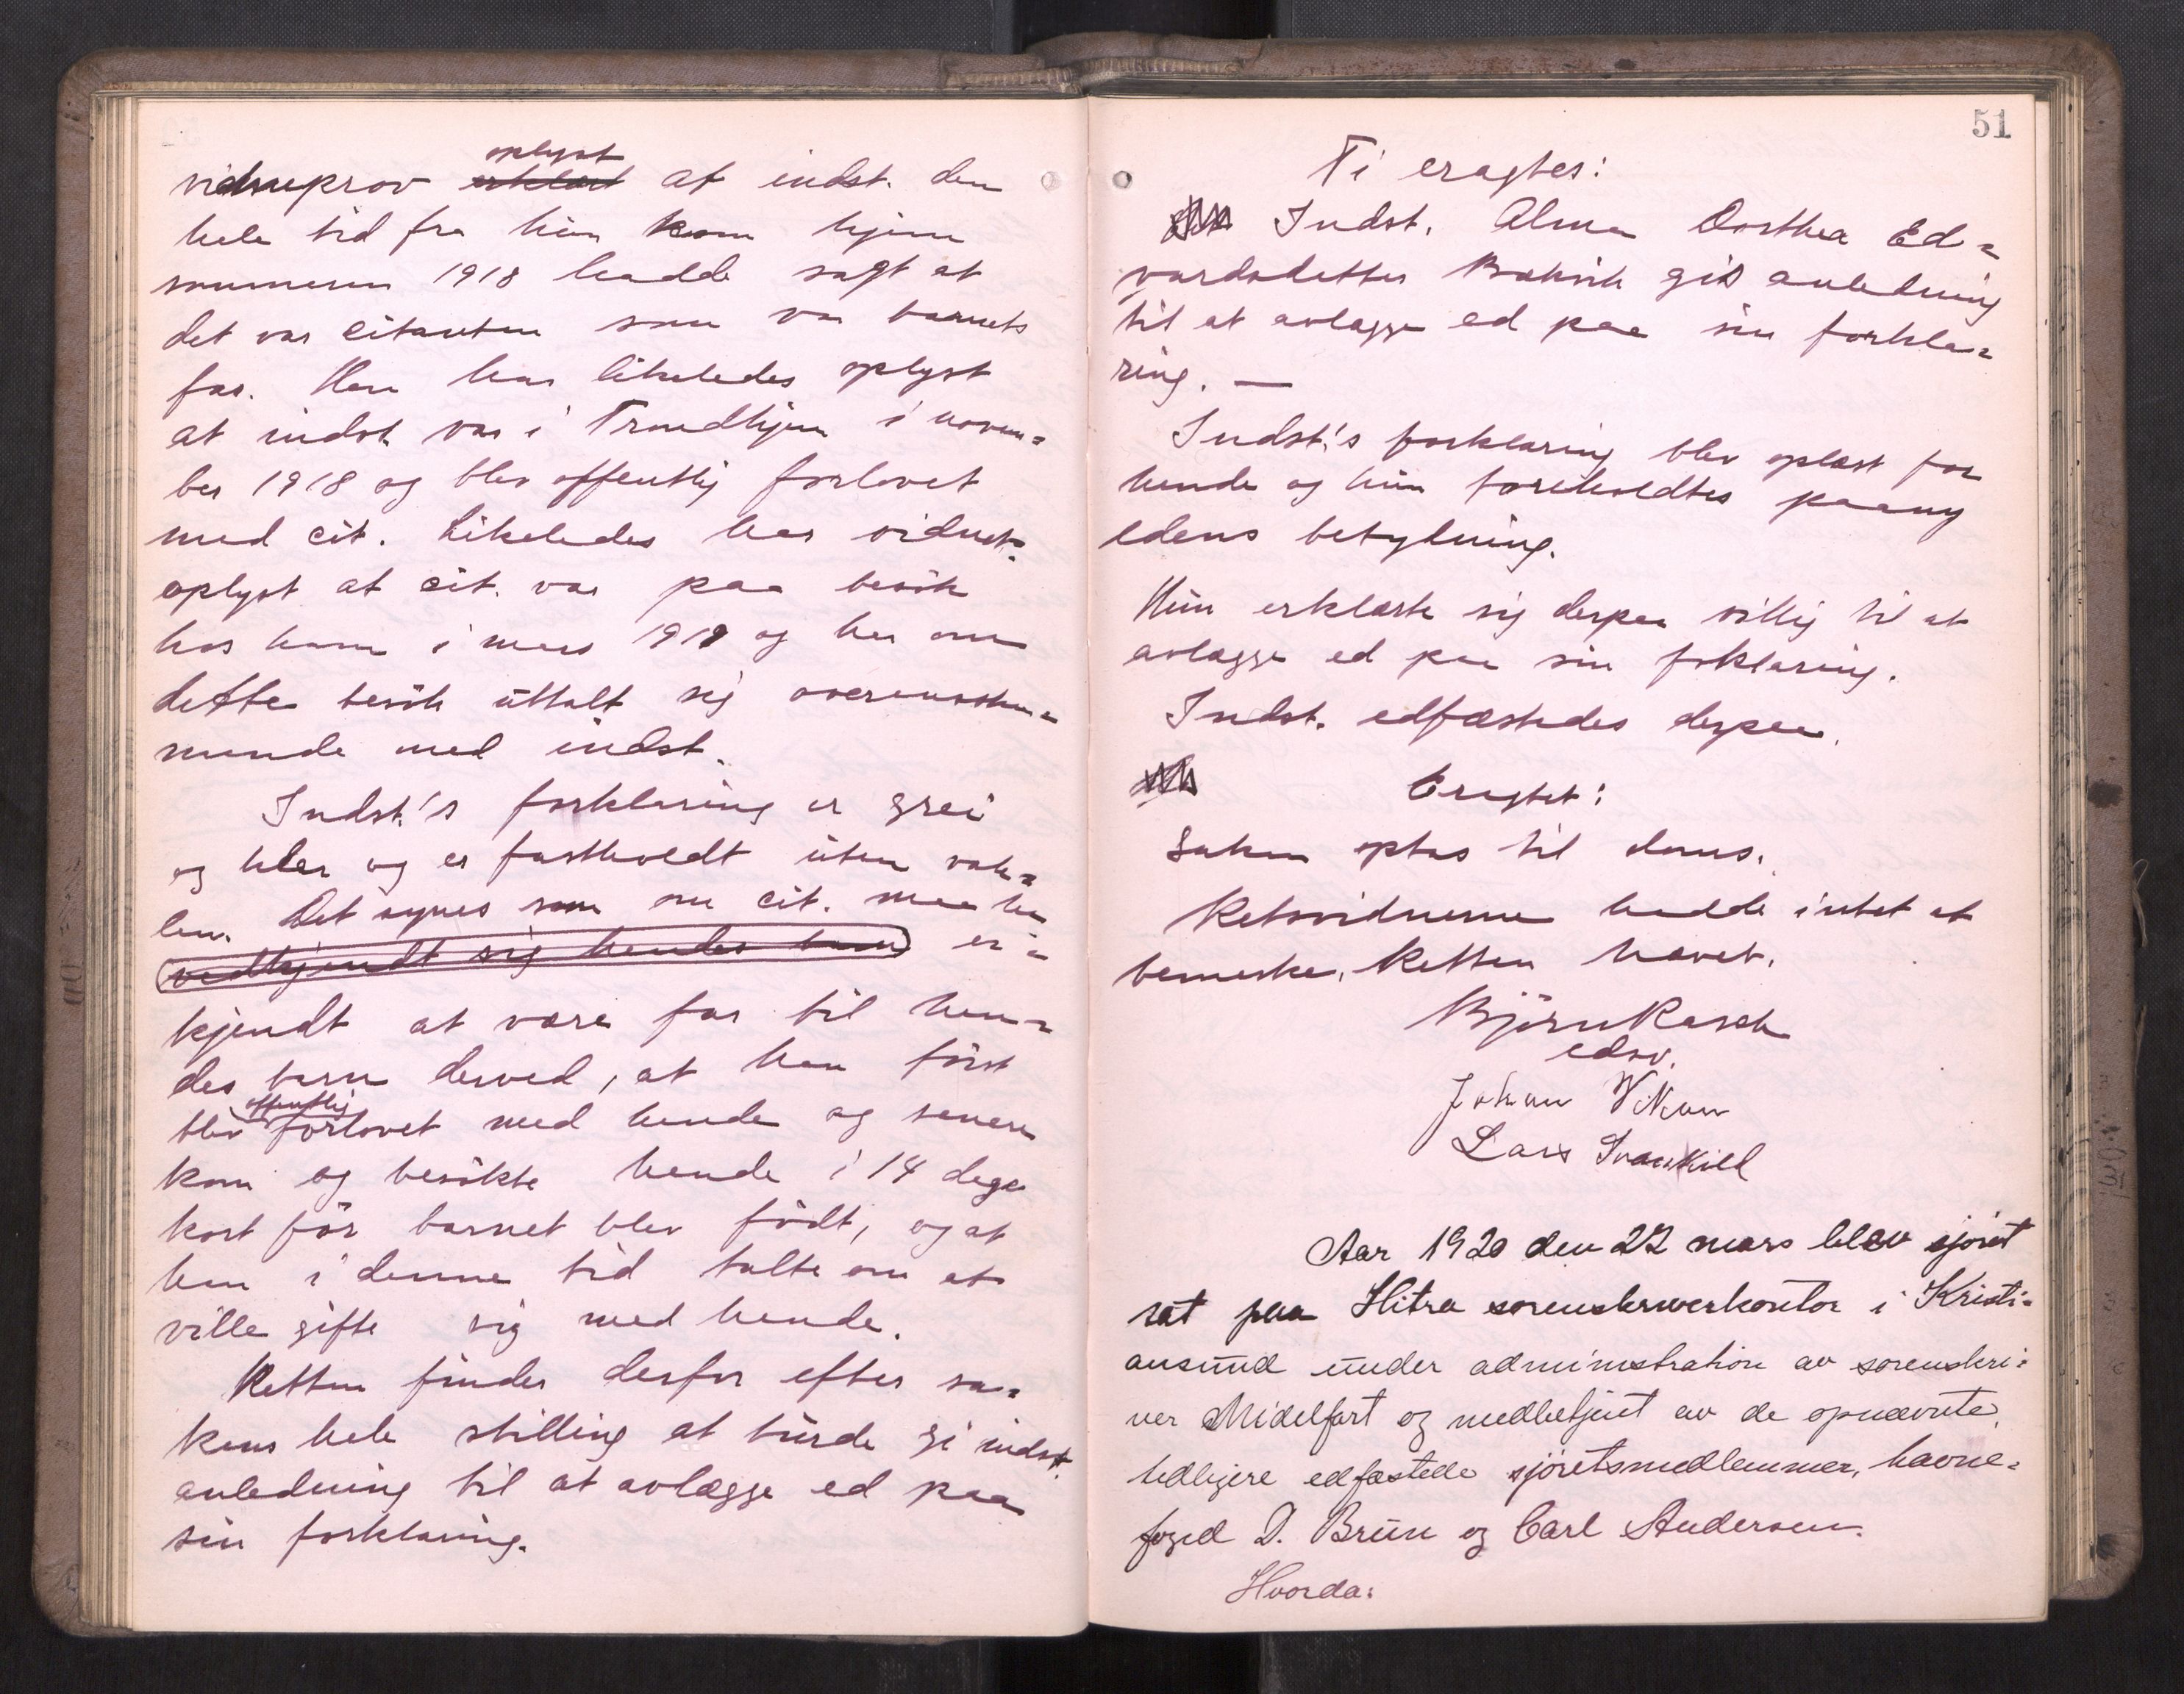 vidneprov erklært oplyst at indst. den
hele tid fra hun kom hjem
sommeren 1918 hadde sagt at
det var citanten som var barnets
far. Han har likeledes oplyst
at indst. var i Trondhjem i novem=
ber 1918 og blev offentlig forlovet
med cit. Likeledes har vidnet
oplyst at cit. var paa besök
hos ham i mars 1919 og har om
dette besök uttalt sig overensstem=
mende med indst.
Indst.'s forklaring er grei
og klar og er fastholdt uten vak=
len. Det synes som om cit. maa ha
vedkjendt sig hendes barn er=
kjendt at være far til hen=
des barn derved, at han först
blev offentlig forlovet med hende og senere
kom og besökte hende i 14 dage
kort för barnet blev födt, og at
han i denne tid talte om at
ville gifte sig med hende.
Retten finder derfor efter sa=
kens hele stilling at burde gi indst.
anledning til at avlægge ed paa
sin forklaring.
51
Ti eragtes:
Indst. Alma Dorthea Ed=
vardsdatter Bakvik gis anledning
til at avlægge ed paa sin forkla=
ring. —
Indst.'s forklaring blev oplæst for
hende og hun foreholdtes paany
edens betydning.
Hun erklærte sig derpaa villig til at
avlægge ed paa sin forklaring.
Indst. edfæstedes derpaa.
Eragtet:
Saken optas til doms.
Retsvidnerne hadde intet at
bemerke. Retten hævet.
Björn Rasch
edsv.
Johan Vikan
Lars Svankild
Aar 1920 den 22 mars blev sjöret
sat paa Hitra sorenskriverkontor i Kristi=
ansund under administration av sorenskri=
ver Midelfart og medbetjent av de opnævnte
tidligere edfæstede sjöretsmedlemmer, havne=
foged D. Brun og Carl Andersen.
Hvorda: